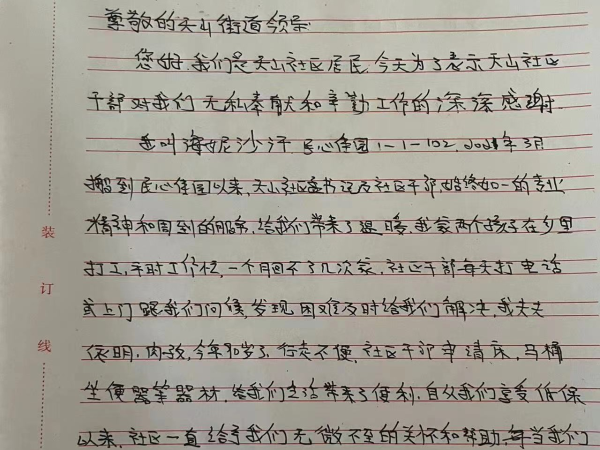 尊敬的天山街道领导
您好,我们是天山社区居民,今天为了表示天山社区
干部对我们无私奉献和辛勤工作的深深感谢.
我叫海妮沙汗,民心佳园1-1-102,2021年3月
搬到民心佳园以来,天山社区书记及社区干部始终如一的专业
精神和周到的服务,给我们带来了温暖,我家两个孩子在乡里
打工,平时工作忙,一个月回不了几次家,社区干部每天打电话
或上门跟我们问候,发现困难及时给我们解决,我丈夫
依明.肉孜,今年90岁了,行走不便,社区干部申请床,马桶
坐便器等器材,给我们生活带来了便利,自从我们享受低保
以来,社区一直给予我们无微不至的关怀和帮助,每当我们
装
订
线